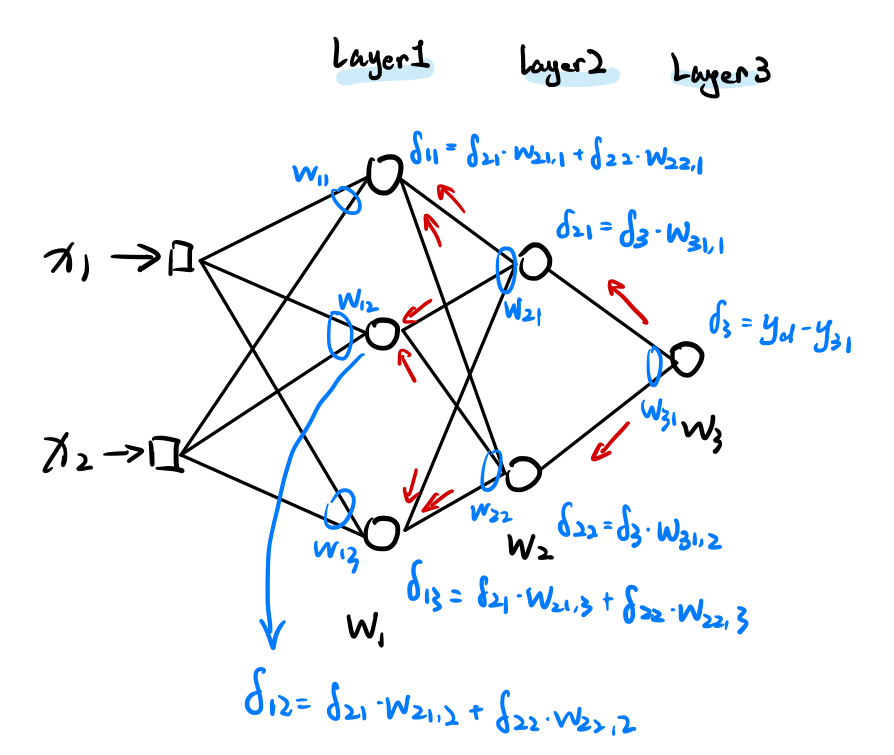 Layer1 Layer2 Layer3
δ11 = δ21·w21,1 + δ22·w22,1
w11
δ21 = δ3·w31,1
x1
w12
w21
δ3 = yd - y31
w31
W3
x2
w22
δ22 = δ3·w31,2
w13
W2
δ13 = δ21·w21,3 + δ22·w22,3
W1
δ12 = δ21·w21,2 + δ22·w22,2